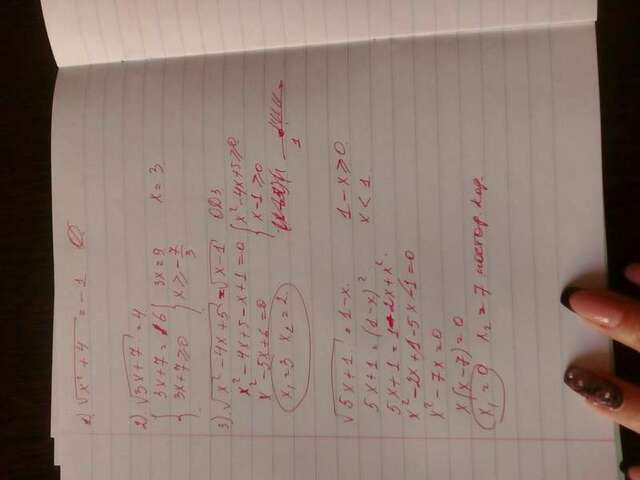 1) √x² + 4 = -1 ∅
2) √3x + 7 = 4
{ 3x + 7 = 16 { 3x = 9 x = 3
{ 3x + 7 ≥ 0 { x ≥ -7/3
3) √x² - 4x + 5 = √x - 1 ОДЗ
x² - 4x + 5 - x + 1 = 0 { x² - 4x + 5 ≥ 0
x² - 5x + 6 = 0 { x - 1 ≥ 0
x₁ = 3 x₂ = 2 1
√5x + 1 = 1 - x. 1 - x ≥ 0
5x + 1 = (1 - x)² x < 1
5x + 1 = 1 - 2x + x²
x² - 2x + 1 - 5x - 1 = 0
x² - 7x = 0
x(x - 7) = 0
x₁ = 0 x₂ = 7 постор. кор.